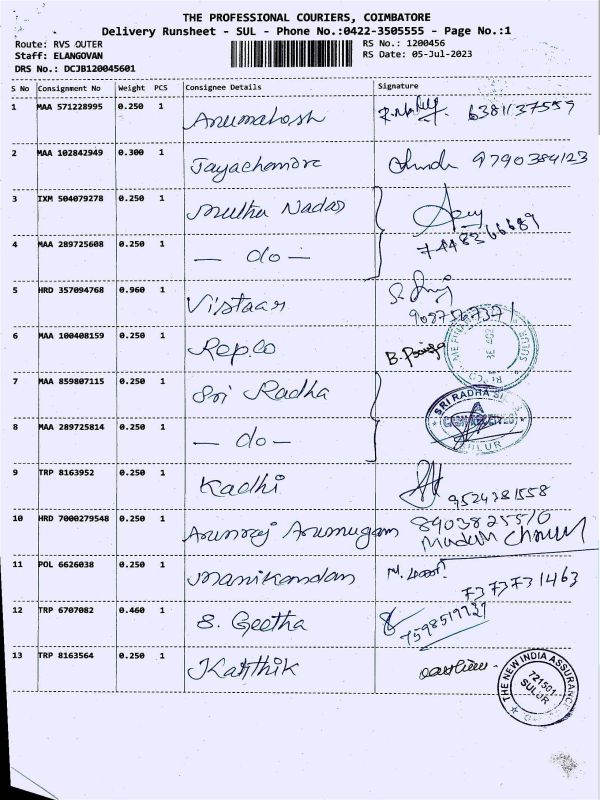 THE PROFESSIONAL COURIERS, COIMBATORE
Delivery Runsheet - SUL - Phone No.:0422-3505555 - Page No.:1
Route: RVS OUTER RS No.: 1200456
Staff: ELANGOVAN RS Date: 05-Jul-2023
DRS No.: DCJB120045601
S No Consignment No Weight PCS Consignee Details Signature
1 MAA 571228995 0.250 1 6381137559
2 MAA 102842949 0.300 1 9790384123
3 IXM 504079278 0.250 1 Muthu Nadar
7448366689
4 MAA 289725608 0.250 1 — do —
5 HRD 357094768 0.960 1 Vistaar
6 MAA 100408159 0.250 1 Repco B.
SULUR
7 MAA 859807115 0.250 1 Sri Radha
SRI RADHA
8 MAA 289725814 0.250 1 — do —
SULUR
9 TRP 8163952 0.250 1 Kadhi
9524381558
10 HRD 7000279548 0.250 1 Arunraj Arumugam 8903825510
11 POL 6626038 0.250 1 Manikandan M.
7373731463
12 TRP 6707082 0.460 1 S. Geetha
13 TRP 8163564 0.250 1 Karthik
THE NEW INDIA ASSURANCE
721501
SULUR